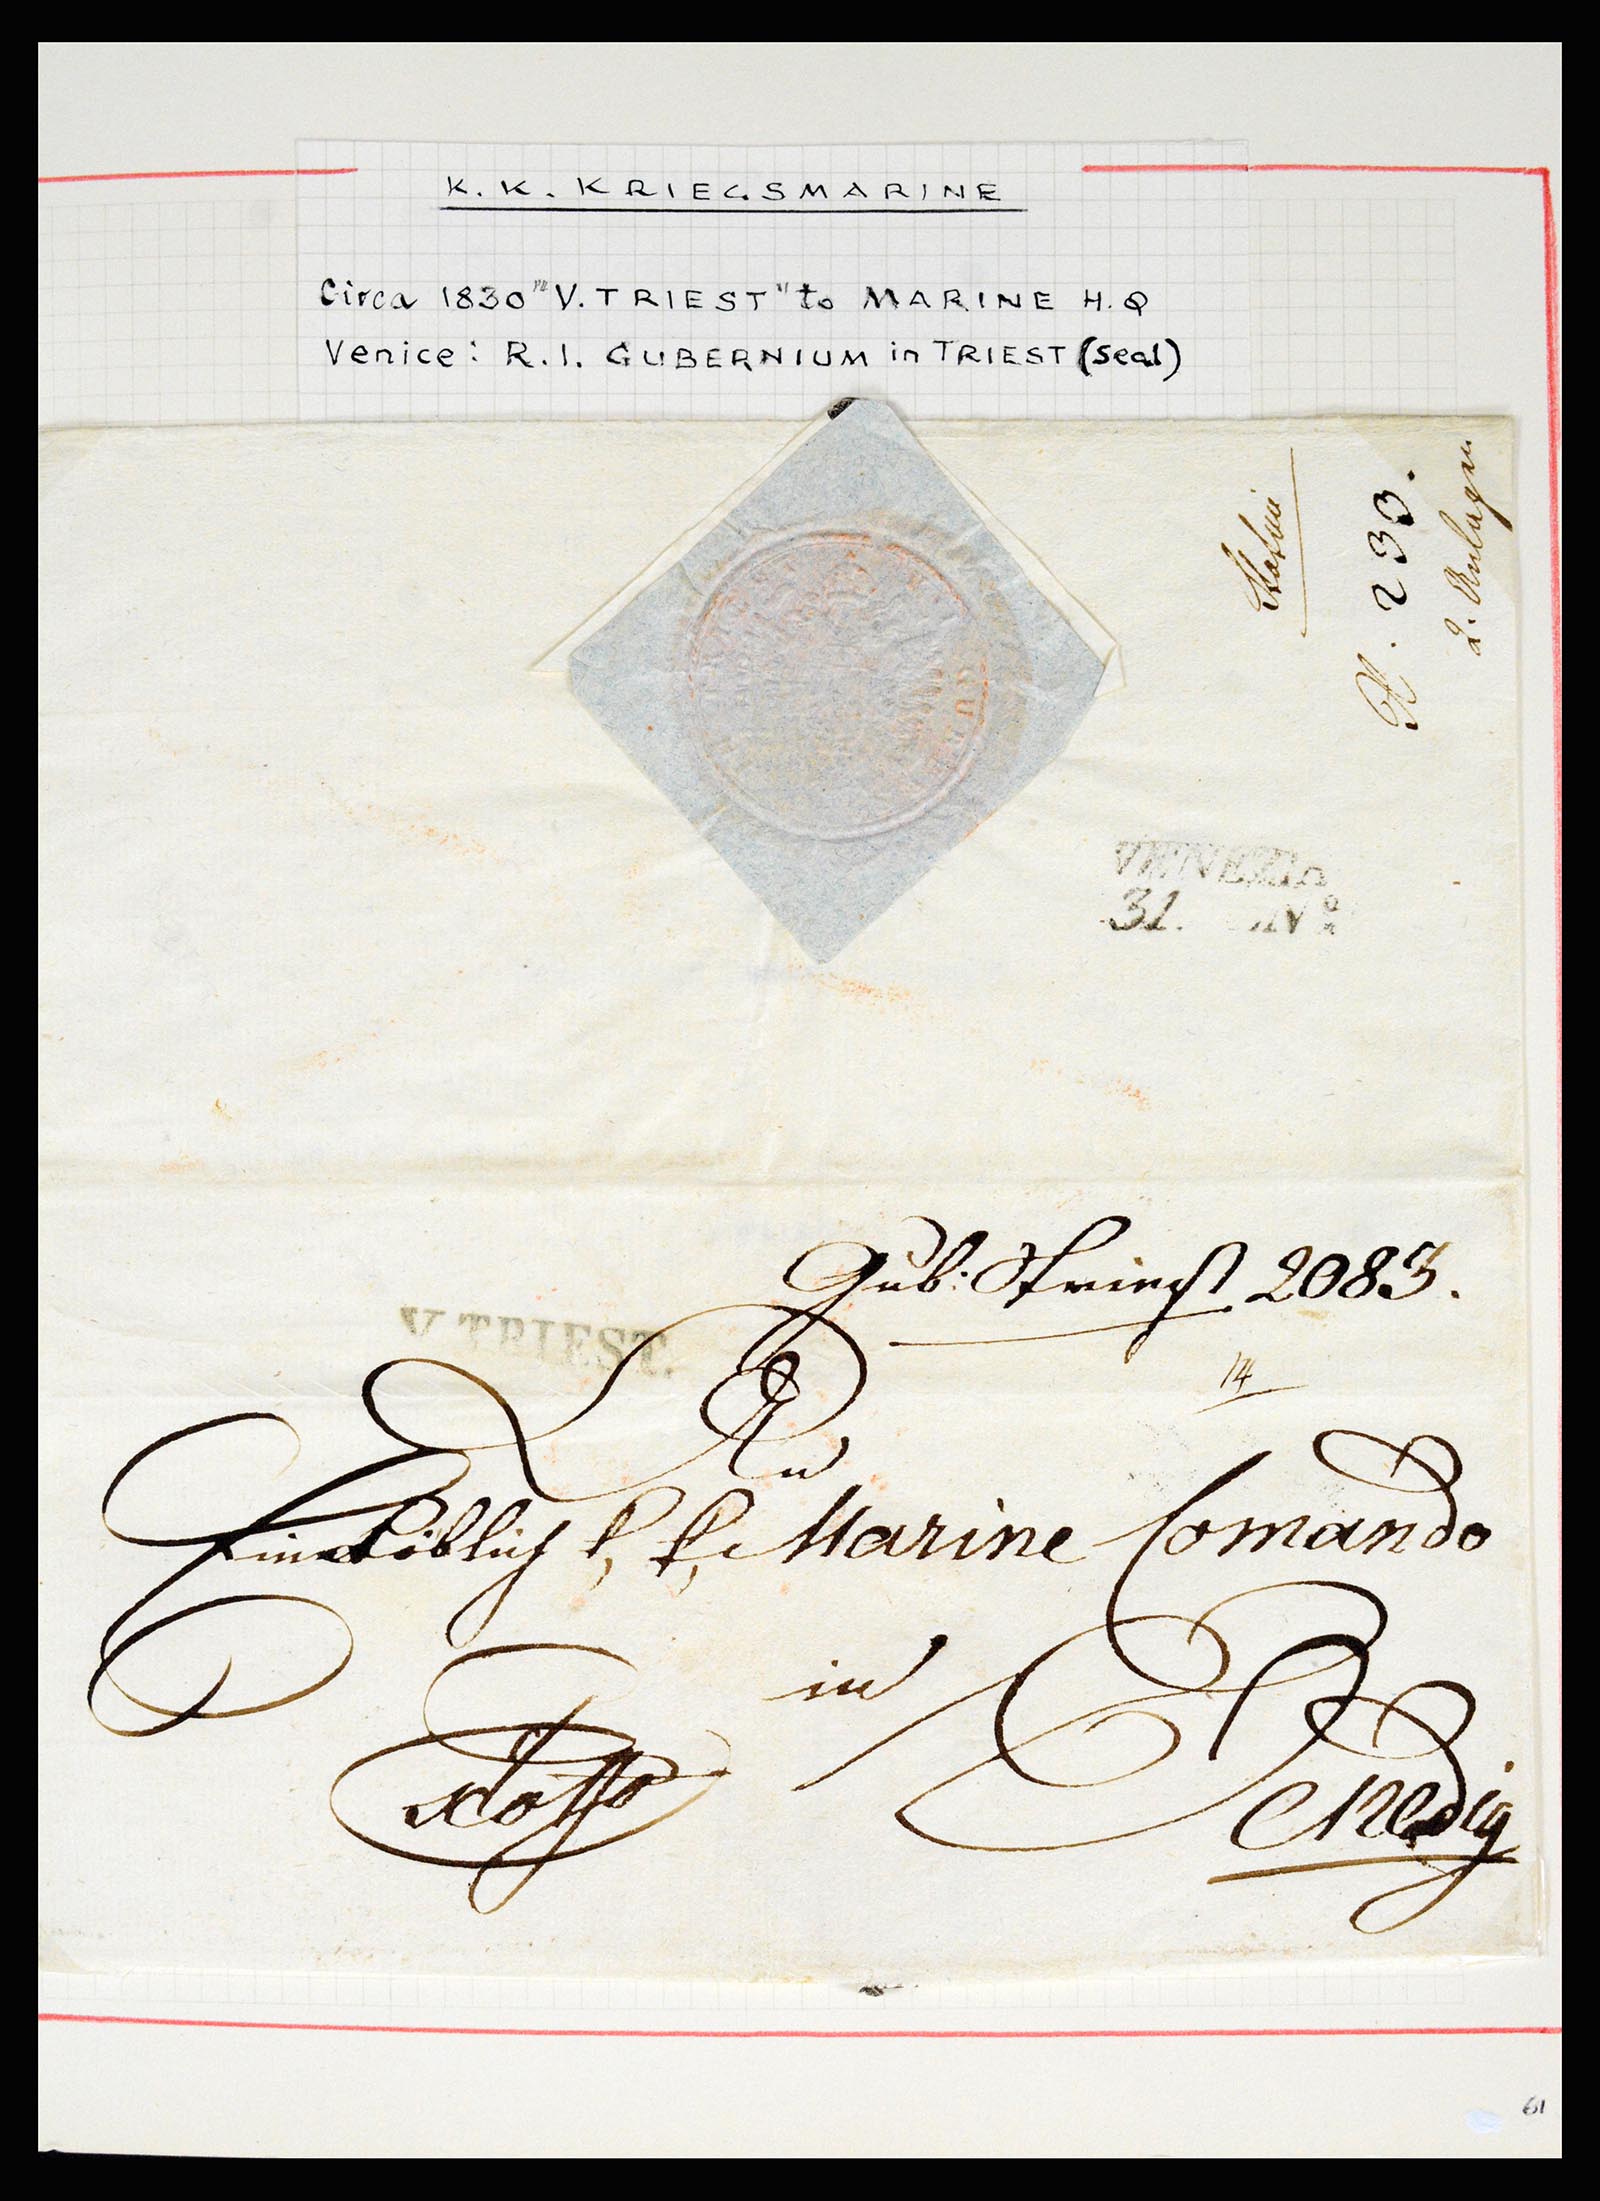 K. K. KRIEGSMARINE
Circa 1830 "V. TRIEST" to MARINE H.Q
Venice: R. I. GUBERNIUM in TRIEST (Seal)
N. 230.
2. Anlagen
VENEZIA
31.
Gub: Triest 2083.
V. TRIEST.
14
An
Ein Löblich k. k. Marine Comando
in
Venedig
61